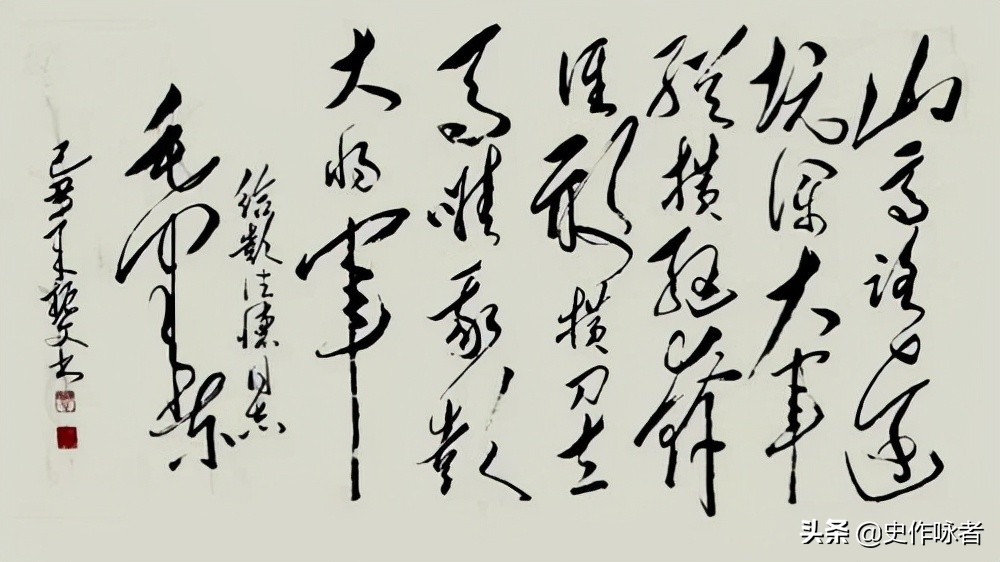 山高路远
坑深大军
纵横驰奔
谁敢横刀立
马唯我彭
大将军
给彭德怀同志
毛泽东
己丑年 书
头条 @史作咏者